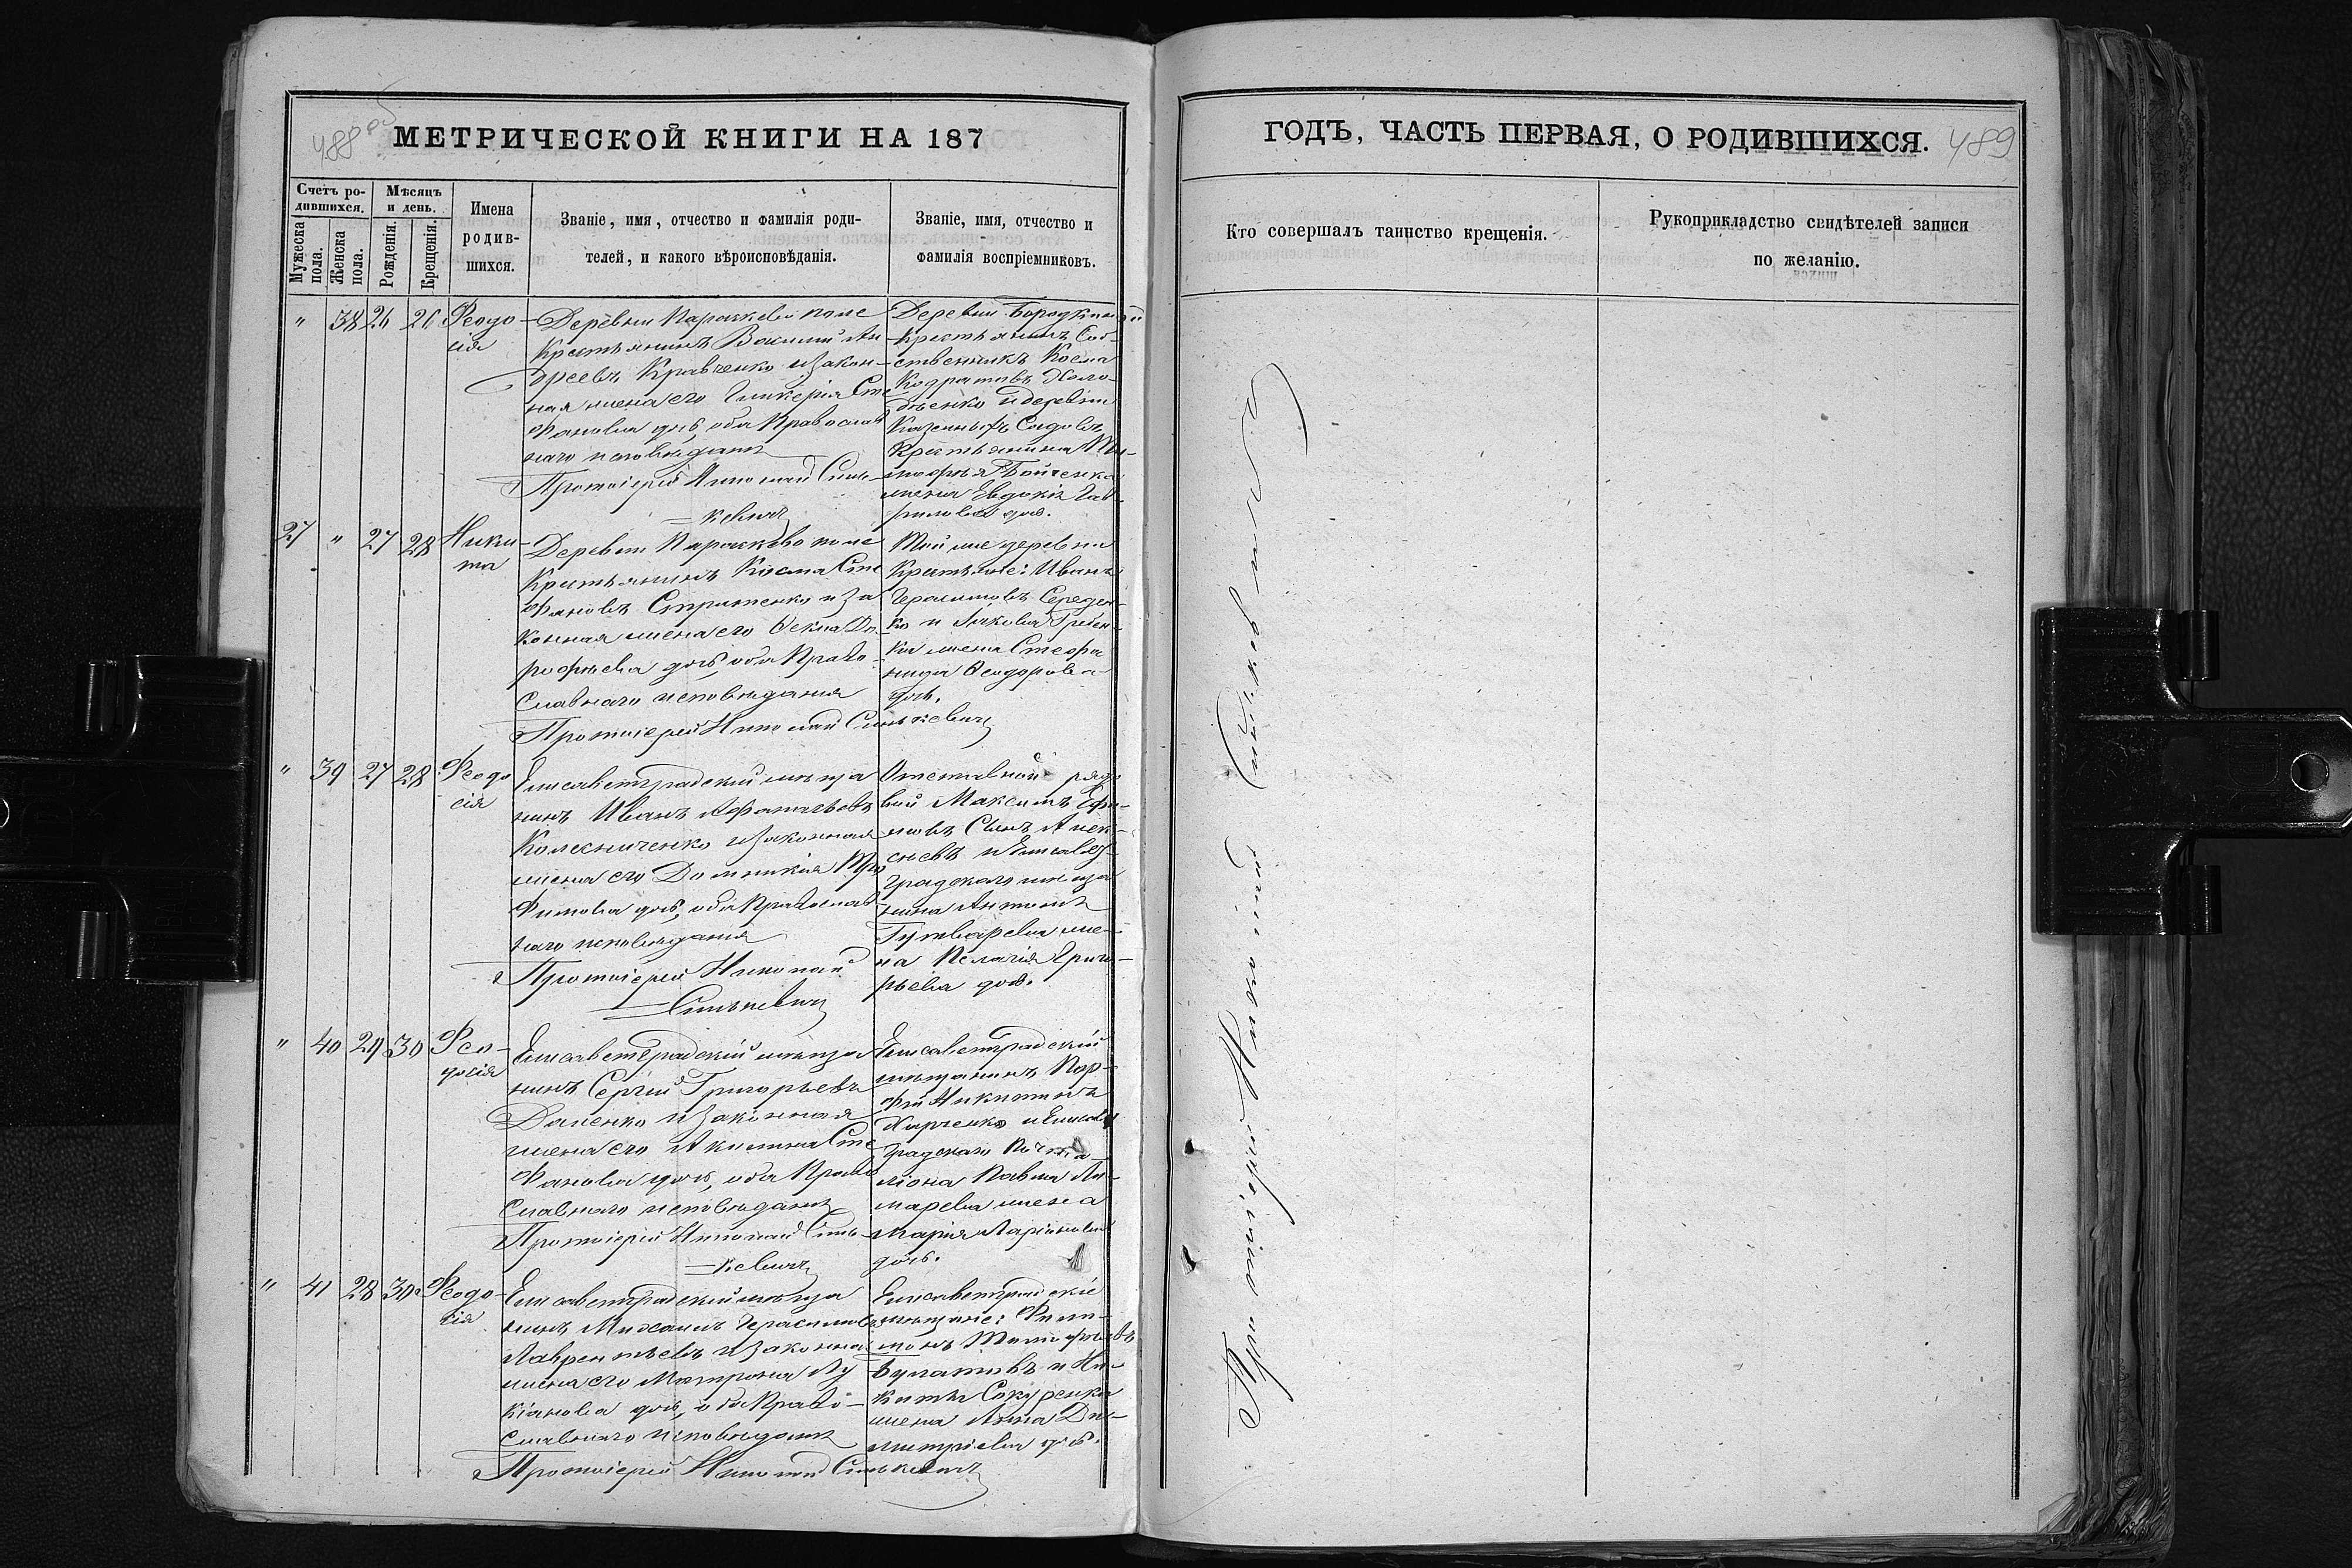 488 об
МЕТРИЧЕСКОЙ КНИГИ НА 187
Счетъ ро-
дившихся.
Мѣсяцъ
и день.
Мужеска
пола.
Женска
пола.
Рожденія.
Крещенія.
Имена
родив-
шихся.
Званіе, имя, отчество и фамилія роди-
телей, и какого вѣроисповѣданія.
Званіе, имя, отчество и
фамилія воспріемниковъ.
" 38 26 26 Феодо-
сія
Деревни Параскеви поле
Крестьянинъ Василій Ан
дреевъ Кравченко и закон-
ная жена его Гликерія Сте
фанова дочь, оба Православ
наго исповѣданія
Протоіерей Николай Синь-
кевичъ
Деревни
Крестьянинъ Соб-
ственникъ Косма
Кодратовъ Холо-
деенко и деревни
Казенныхъ Садовъ
Крестьянина Ти-
мофея Бойченка
жена Евдокія Гав-
рилова доч.
27 " 27 28 Ники-
та
Деревни Параскево поле
Крестьянинъ Косма Сте
фановъ Стриженко и за
конная жена его Ѳекла До-
рофѣева дочь, оба Право-
славнаго исповѣданія
Протоіерей Николай Синькевичъ
Той же деревни
Крестьяне: Иванъ
Герасимовъ Середен-
ко и Якова Гребен-
ки жена Стефа
нида Ѳеодорова
дочь.
" 39 27 28 Феодо
сія
Елисаветградскій мѣща
нинъ Иванъ Афанасьевъ
Колесниченко и законная
жена его Домникія Тро
фимова дочь, оба Православ-
наго исповѣданія
Протоіерей Николай
Синькевичъ
Отставной рядо
вой Максимъ Ефи-
мовъ Сынъ Алек-
сѣевъ и Елисавет
градскаго мѣща
нина Антона
Гутварева же-
на Пелагія Григо-
рьева доч.
" 40 29 30 Фео-
досія
Елисаветградскій мѣща
нинъ Сергій Григорьевъ
Даценко и законная
жена его Акилина Сте
фанова дочь, оба Право
славнаго исповѣданія
Протоіерей Николай Синь-
кевичъ
Елисаветградскій
мѣщанинъ Пор-
фій Никитинъ
Харченко и Елисавет
градскаго Почта-
ліона Павла Ли-
марева жена
Марія Ларіонова
дочь.
" 41 28 30 Феодо-
сія
Елисаветградскій мѣща
нинъ Михаилъ Герасимовъ
Лаврентьевъ и законная
жена его Матрона Лу
кіанова дочь, оба Право-
славнаго исповѣданія
Протоіерей Николай Синькевичъ
Елисаветградскіе
мѣщане: Фили-
монъ Тимофѣевъ
Булатовъ и Ни-
киты Сокуренка
жена Анна Ди-
митріева доч.
ГОДЪ, ЧАСТЬ ПЕРВАЯ, О РОДИВШИХСЯ.
489
Кто совершалъ таинство крещенія.
Рукоприкладство свидѣтелей записи
по желанію.
Протоіерей Николай Синькевичъ